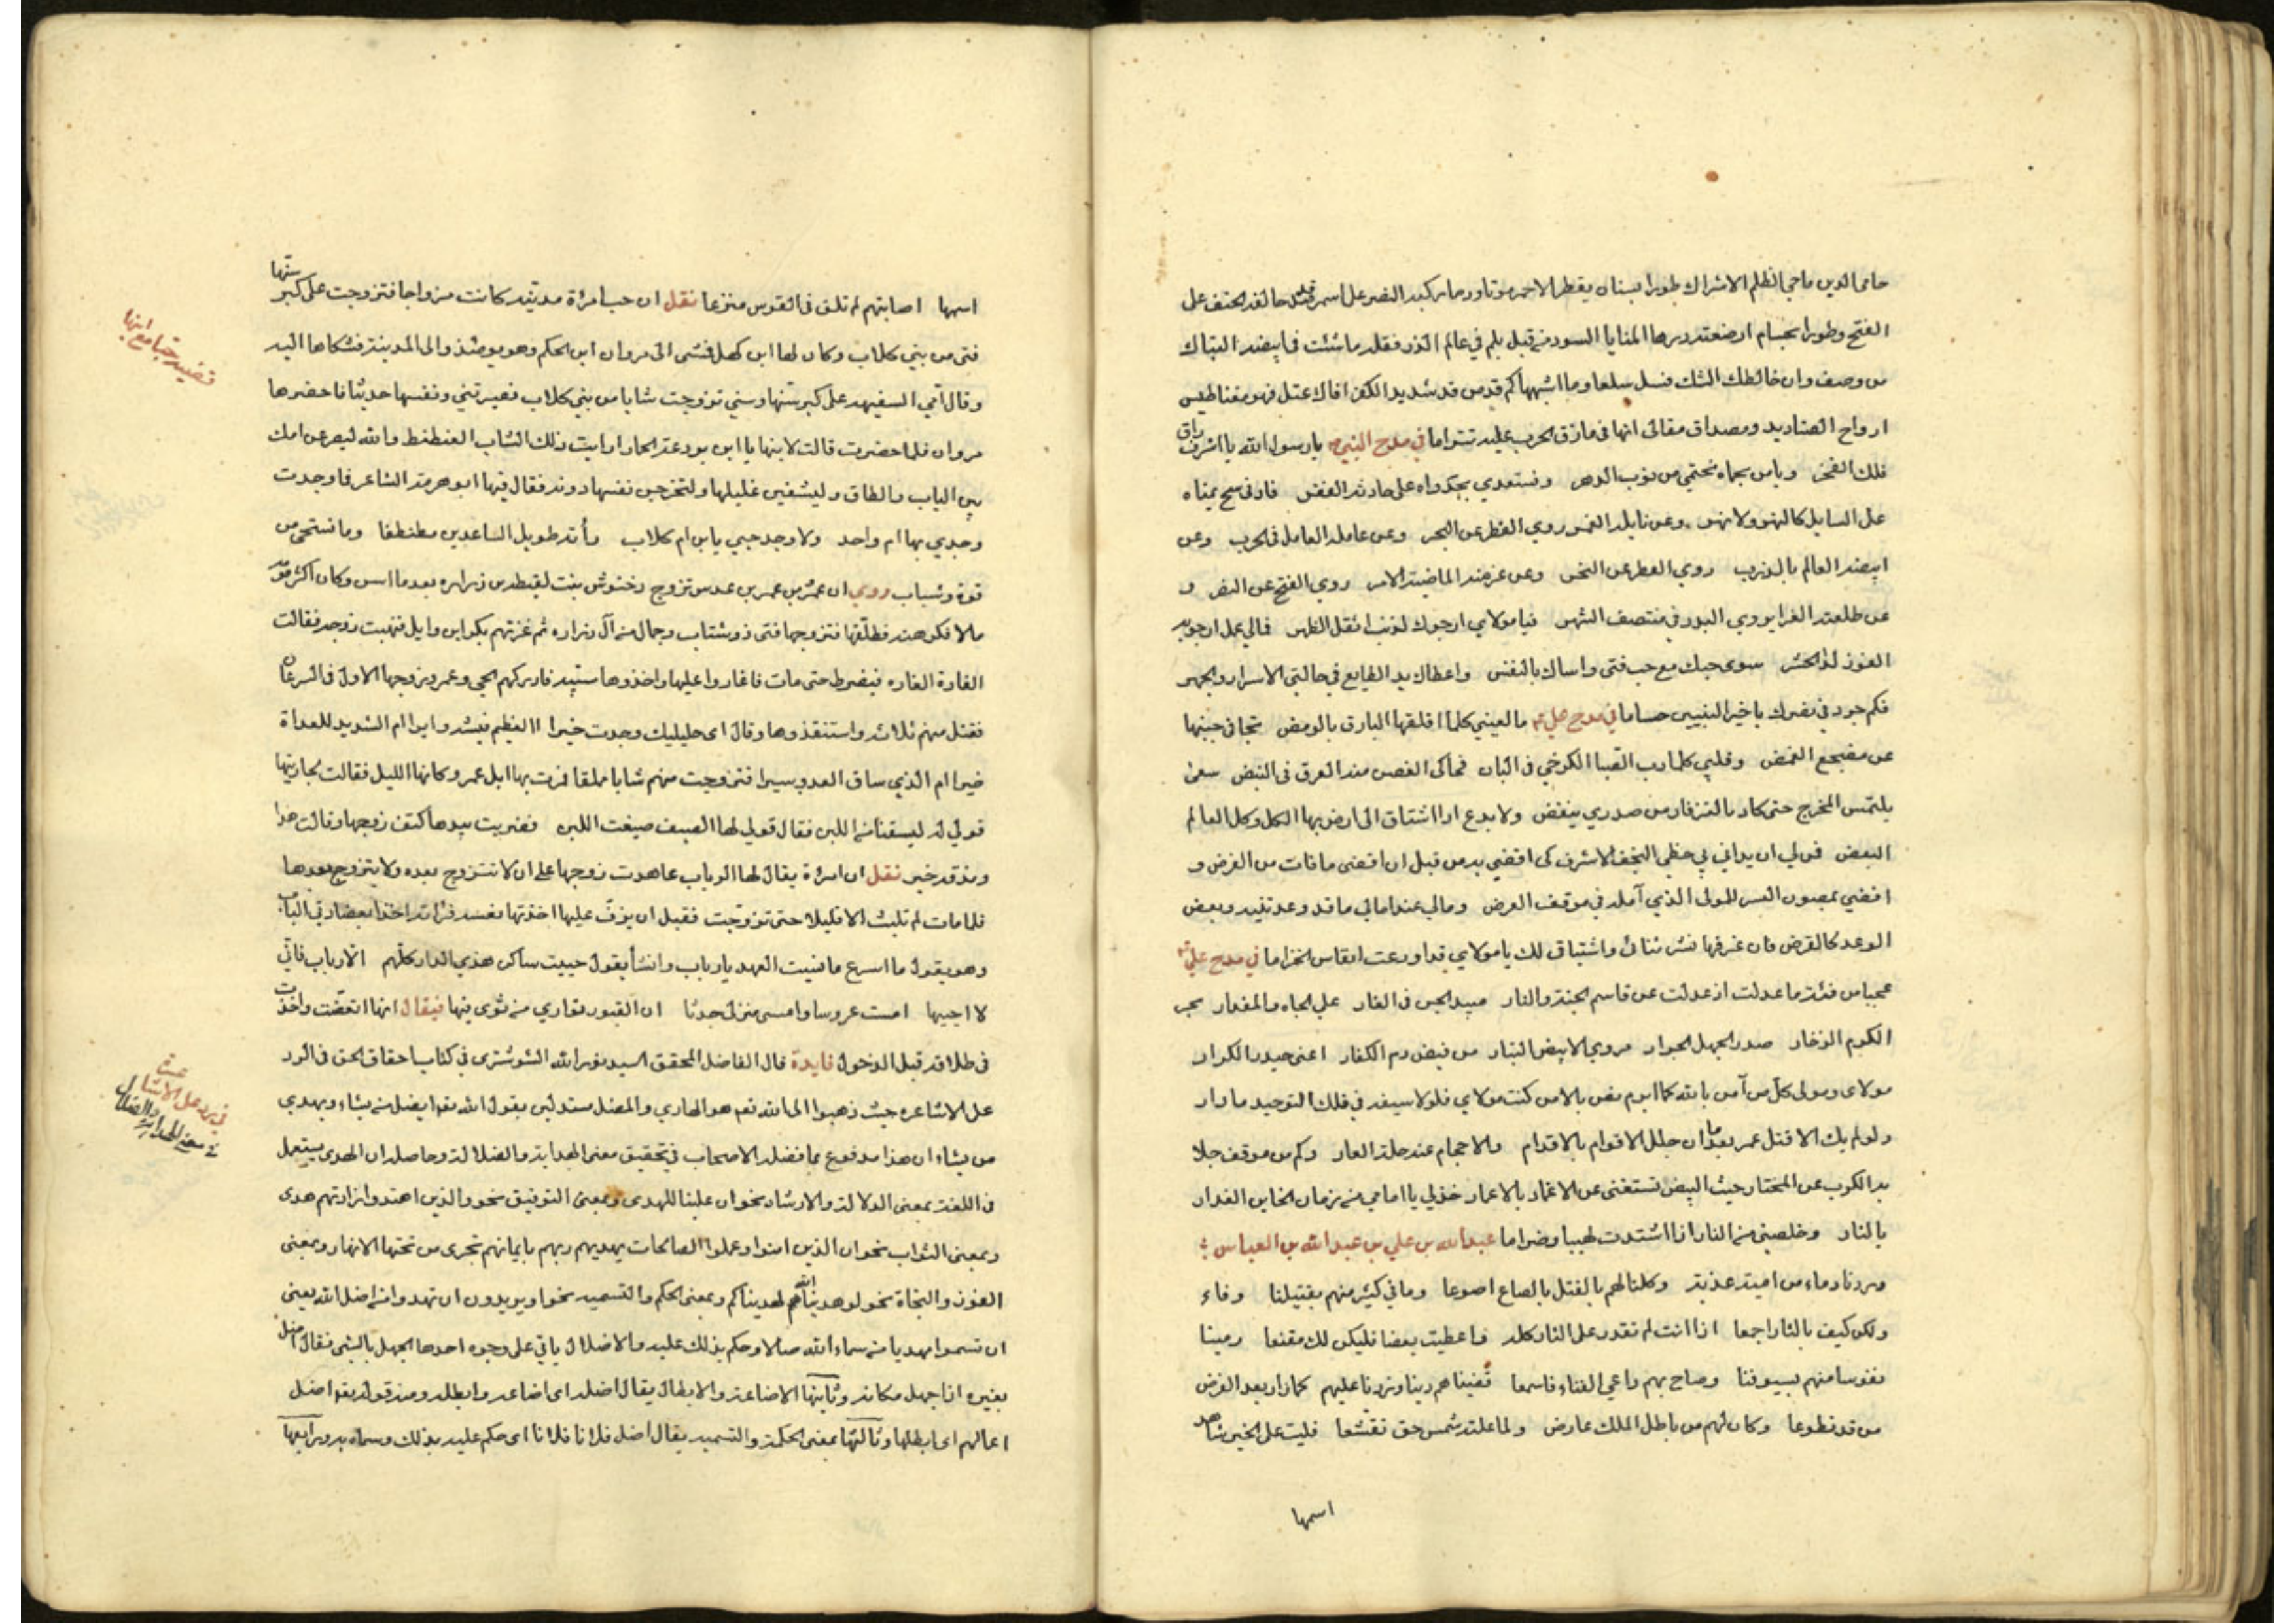 حامى الدين ماحي الظلم الاشراك طورا بسنان يقطر الاحمر موتا ودما يركبه النصر على اسمر حالفه الحتف على
الفتح وطورا بحسام ارضعته درها المنايا السود من قبل بلم في عالم الذر فقلد ما شئت في ابيضه البتاك
من وصف وان خالطك الشك فسل سلعا وما اشبهها كم قد من قد شديد الكفر افاك عتل فهو مغناطيس
ارواح الصناديد ومصداق مقالى انها في مازق الحرب عليه تترا ما في مدح النبي يا رسول الله يا اشرف راق
فلك الفخر ويا من بحماه نحتمي من نوب الدهر ونستعدي بجدواه على حادثة الفقر فاد في سح يمناه
على السايل كالنهر ولا نهر وعن نايله الغمر روي القطر عن البحر وعن عامله العامل في الحرب وعن
ابيضه العالم بالضرب روي الفطر عن النحر وعن عزمته الماضية الامر روي الفتح عن النصر و
عن طلعته الغرا يروي البدر في منتصف الشهر فيا مولاي ارجوك لذنب اثقل الظهر فمالي عمل ارجو به
الفوز لدى الحشر سوى حبك مع حب فتى واساك بالنفس واعطاك يد الطايع في حالتي الاسرار والجهر
فكم جرد في نصرك يا خير النبيين حساما في مدح علي ع ما لعيني كلما اقلقها البارق بالومض تجافى جنبها
عن مضجع الغمض وقلبي كلما دب الصبا الكرخي في البان فحاكى الغصن منه العرق في النبض سعى
يلتمس المخرج حتى كاد بالتزفار من صدري ينقض ولا بدع اذا اشتاق الى ارض بها الكل وكل العالم
البعض فمن لي ان يدانى بي حظي النجف الاشرف كى اقضي به من قبل ان اقضى ما فات من الفرض و
افضي بمصون السر للمولى الذي آمله في موقف العرض ومالي عند امالي ما قد وعدتنيه وبعض
الوعد كالقرض فان غرفها نشر ثنائى واشتياق لك يا مولاي قد اودعت انفاس الخزاما في مدح علي ع
عجبا من فئة ما عدلت اذ عدلت عن قاسم الجنة والنار مبيد الجن في الغار علي الجاه والمقدار بحر
الكرم الزخار صدر الجهل الجرار مروي الابيض البتار من فيض دم الكفار اعنى حيدر الكرار
مولاى ومولى كل من آمن بالله كما ابرم نص بالامن كنت مولاي فلولا سيفه في فلك التوحيد ما دار
ولو لم يك الا قتل عمر بعد ما ان جلل الاقوام بالاقدام والاحجام عند حلة العار وكم من موقف جلا
به الكرب عن المختار حيث البيض تستغنى عن الاغماد بالاعمار خذ لي يا امامي من زمان الخاين الغدار
بالثار وخلصنى من النار اذا اشتدت لهيبا وضراما عبد الله بن علي بن عبد الله بن العباس
وردنا دماء من امية عذبة وكلنا لهم بالقتل بالصاع اصوعا وما في كثير منهم بقتيلنا وفاء
ولكن كيف بالثار اجمعا اذا انت لم تقدر على الثار كله فاعطيت بعضا فليكن لك مقنعا رمينا
نفوسا منهم بسيوفنا وصاح بهم داعي الفناء فاسمعا قضيناهم دينا وزدنا عليهم كما زاد بعد الفرض
من قد تطوعا وكان لهم من باطل الملك عارض ولما علته شمس حق تقشعا فليت على الخير شاهد
اسمها
اسمها اصابتهم لم تلق في القوس منزعا نقل ان حبا مراة مدنيه كانت مزواجا فتزوجت على كبر سنها
فتى من بني كلاب وكان لها ابن كهل فشى الى مروان ابن الحكم وهو يومئذ والى المدينة فشكاها اليه
وقال امي السفيهه على كبر سنها وسني تزوجت شابا من بني كلاب فصيرتني ونفسها حديثا فاحضرها
مروان فلما حضرت قالت لابنها يا ابن بردعة الحمار ارايت ذلك الشاب العنطنط والله ليصرعن امك
بين الباب والطاق وليشفين غليلها ولتخرجن نفسها دونه فقال فيها ابو هرمة الشاعر فما وجدت
وجدي بها ام واحد ولا وجد حبي يا بن ام كلاب رأته طويل الساعدين عطنطفا وما تستحى من
قوة وشباب روي ان عمر بن عمر بن عدس تزوج دخنوش بنت لقيط بن زراره بعد ما اسن وكان اكثر قومه
مالا فكرهته فطلقها فتزوجها فتى ذو شباب وجمال من آل زراره ثم غزتهم بكر بن وايل فنهبت زوجه فقالت
الغارة الغاره فيضرط حتى مات فاغاروا عليها واخذوها سبية فادركهم الحي وعمرو زوجها الاول في السرعان
فقتل منهم ثلاثة واستنقذوها وقال اى حليليك وجدت خيرا االعظيم فيشه وايرا ام الشديد للعداة
ضيرا ام الذي ساق العدو سيرا فتزوجت منهم شابا مملقا فمرت بها ابل عمر وكانها الليل فقالت لجاريتها
قولي له ليسقنا من اللبن فقال قولي لها الصيف ضيعت اللبن فضربت بيدها كتف زوجها وقالت هذا
ومذقه خير نقل ان امراة يقال لها الرباب عاهدت زوجها على ان لا تتزوج بعده ولا يتزوج بعدها
فلما مات لم تلبث الا قليلا حتى تزوجت فقبل ان يزف عليها اخذتها نعسة فراته اخذا بعضادتي الباب
وهو يقول ما اسرع ما نسيت العهد يا رباب وانشأ يقول حييت ساكن هذي الدار كلهم الا رباب فاني
لا احييها امست عروسا وامسى منزلي جدثا ان القبور تواري من ثوى فيها فيقال انها اتعضت واخذت
في طلاقه قبل الدخول فايدة قال الفاضل المحقق السيد نور الله الشوشتري في كتاب احقاق الحق في الرد
على الاشاعره حيث ذهبوا الى الله تعم هو الهادي والمضل مستدلين بقول الله تعم يضل من يشاء ويهدي
من يشاء ان هذا مدفوع بما فضله الاصحاب في تحقيق معنى الهداية والضلالة وحاصله ان الهدى يستعمل
في اللغة بمعنى الدلالة والارشاد نحو ان علينا للهدى وبمعنى التوفيق نحو والذين اهتدوا زادتهم هدى
وبمعنى الثواب نحو ان الذين امنوا وعملوا الصالحات يهديهم ربهم بايمانهم تجرى من تحتها الانهار وبمعنى
الفوز والنجاة نحو لو هدينا الله لهديناكم وبمعنى الحكم والتسمية نحو اتريدون ان تهدوا من اضل الله يعنى
ان تسموا مهديا من سماه الله ضالا وحكم بذلك عليه والاضلال ياتي على وجوه احدها الجهل بالشى فقال اضل
بعيره اذا جهل مكانه وثانيها الاضاعة والابطال يقال اضله اى اضاعه وابطله ومنه قوله تعم اضل
اعمالهم اى ابطلها وثالثها بمعنى الحكم والتسمية يقال اضل فلانا فلانا اى حكم عليه بذلك وسماه به ورابعها
قضية حبا مع ابنها
في رد على الاشاعرة
في معنى الهداية والضلال